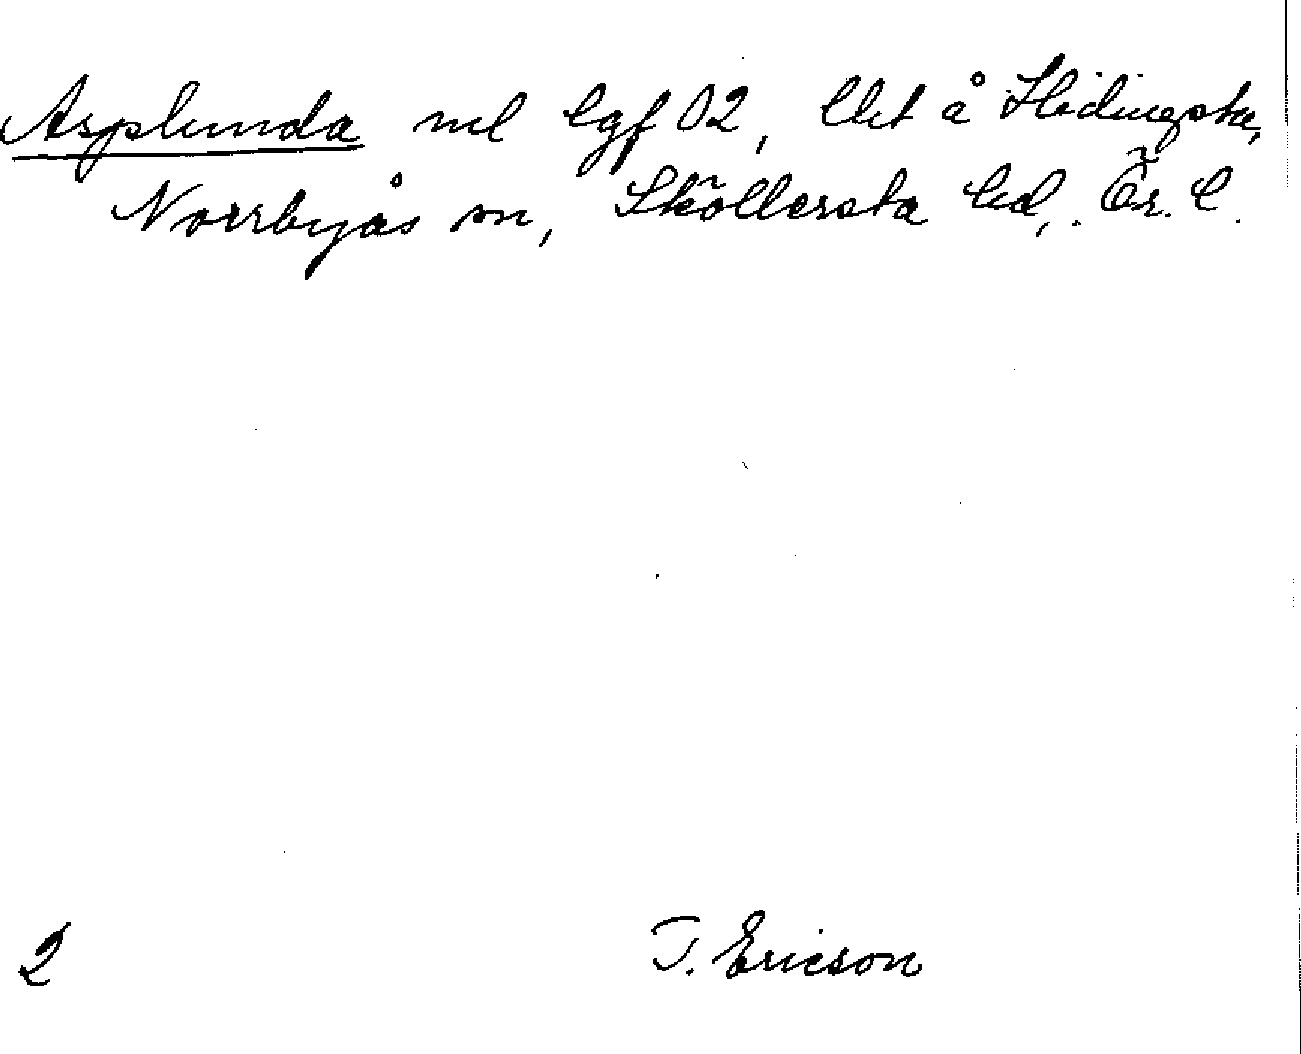 Asplunda nel lgf D2, Utet å Hidingsta,
Norrbyås sn, Sköllersta hd, Ör. l.
2 T. Ericson